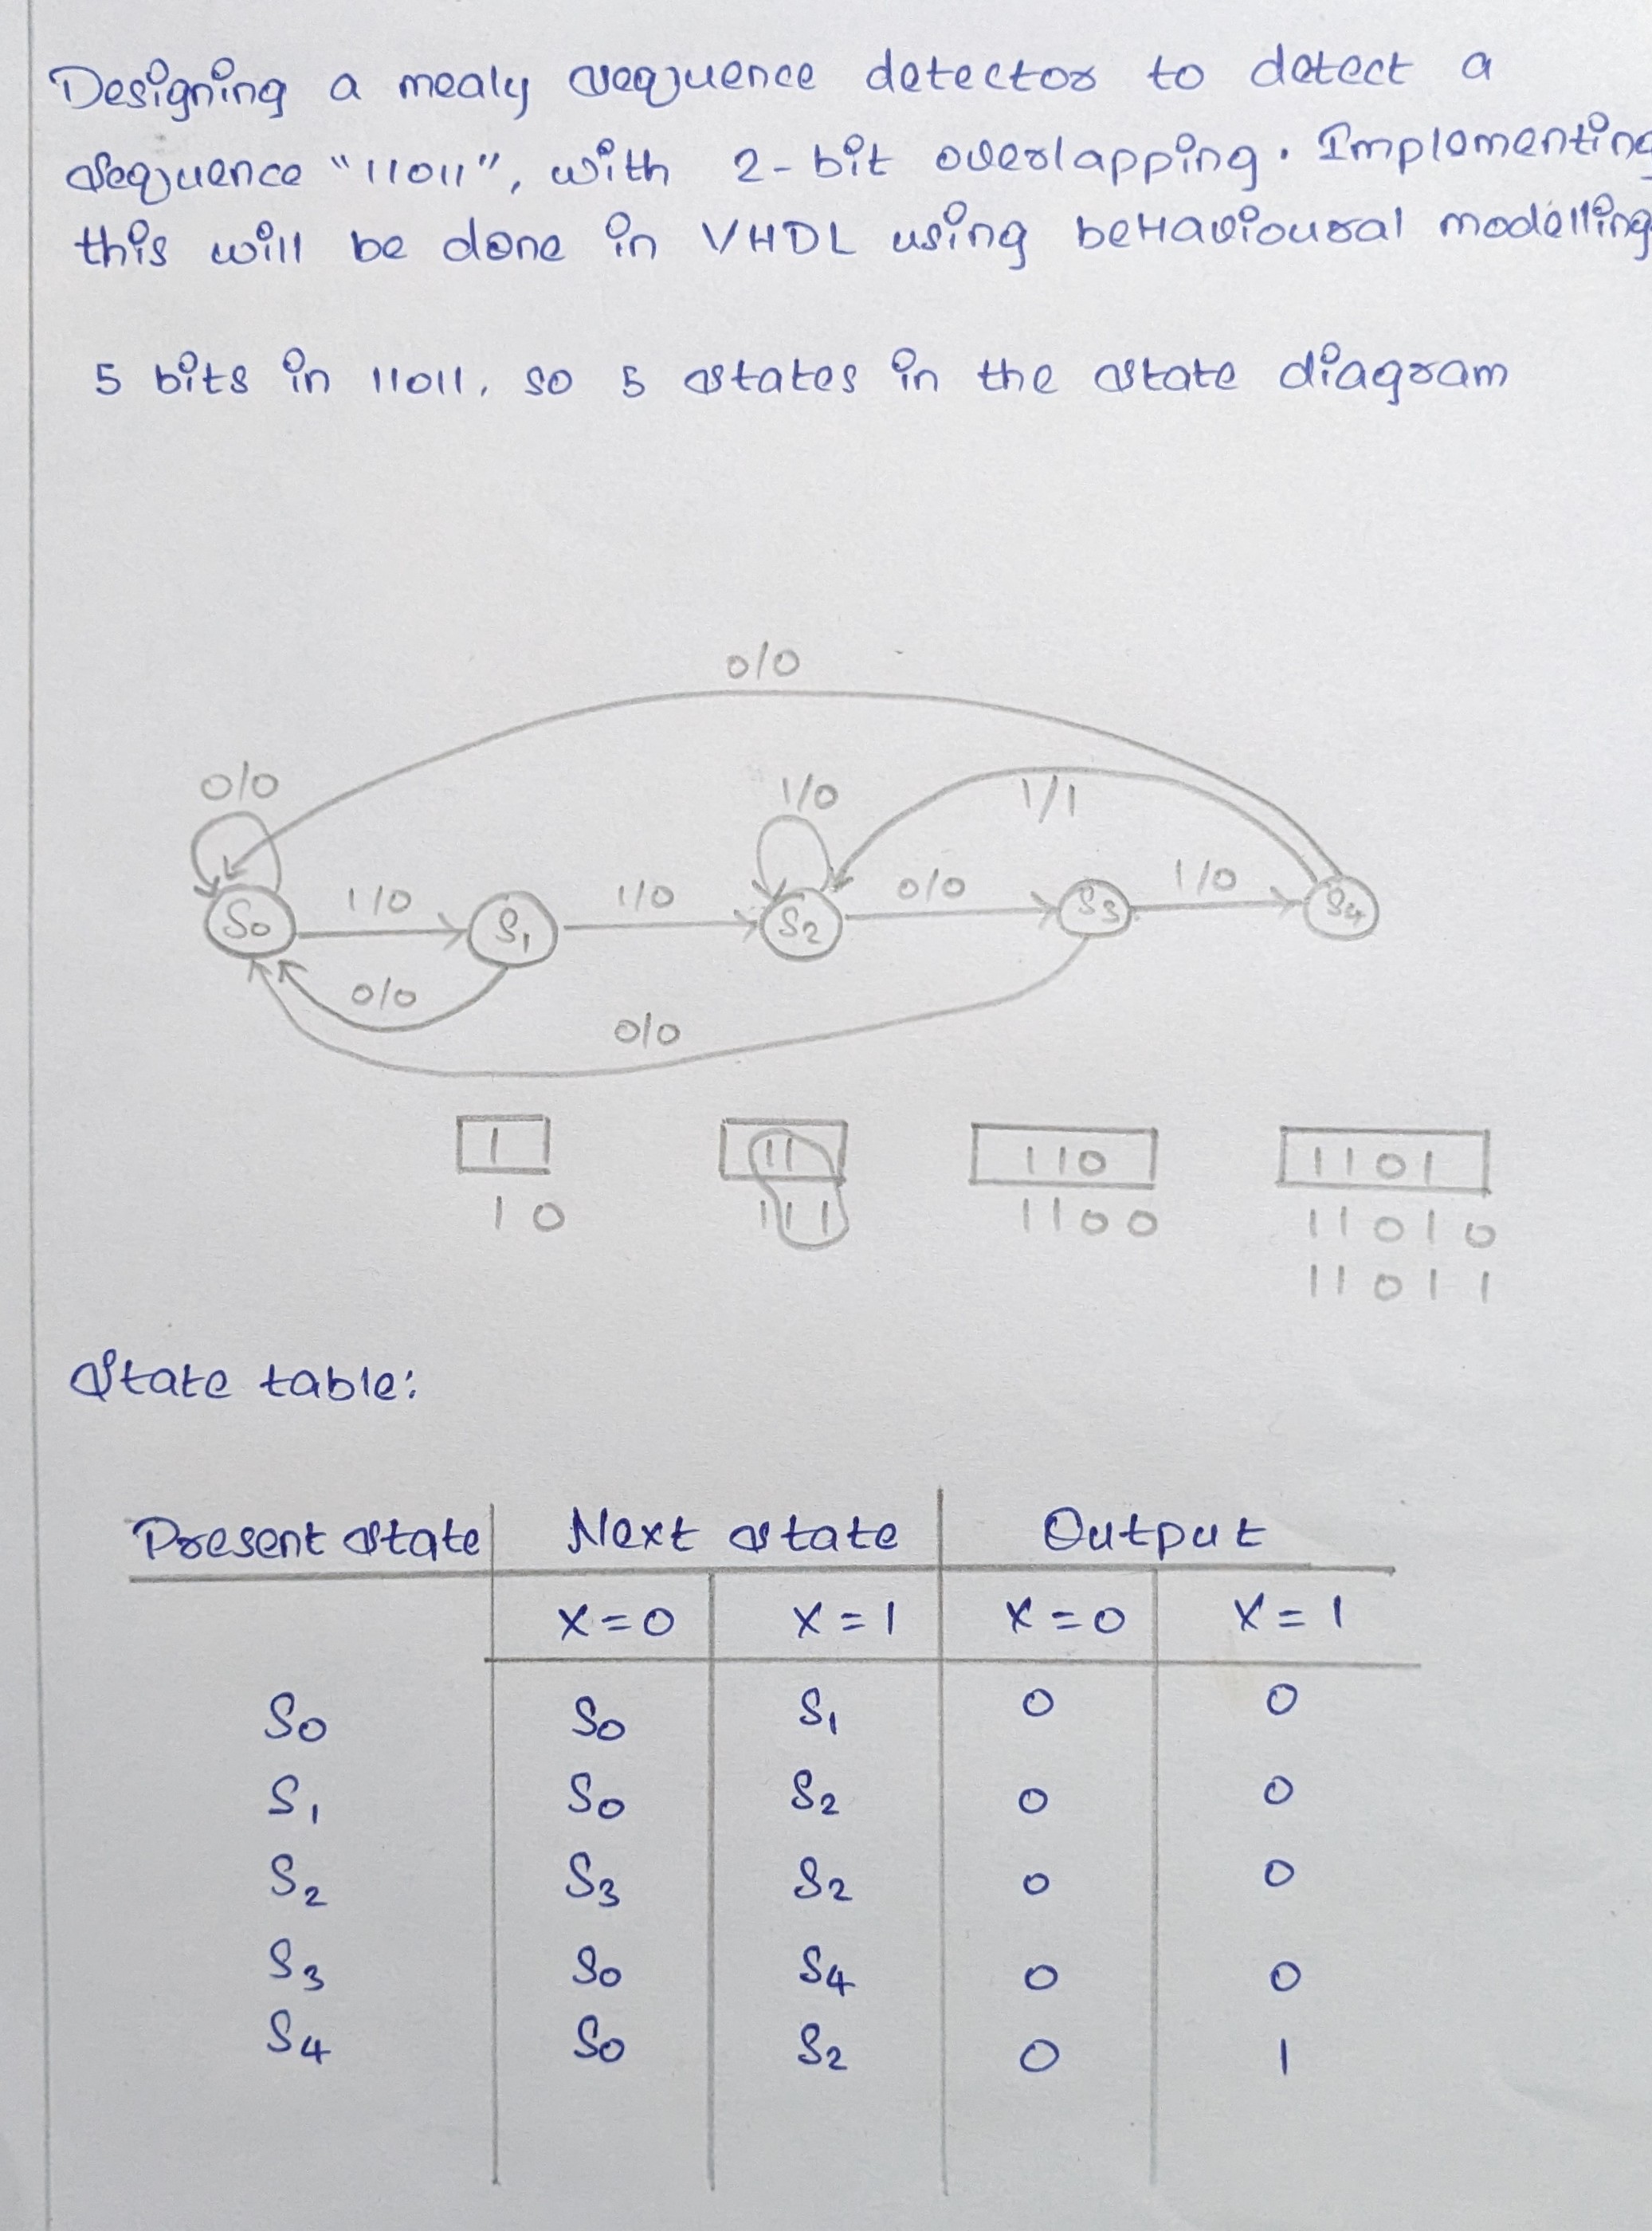 Designing a mealy sequence detector to detect a
sequence "11011", with 2-bit overlapping. Implementing
this will be done in VHDL using beHavioural modelling
5 bits in 11011, so 5 states in the state diagram
0/0
0/0 1/0 1/1
S0 1/0 S1 1/0 S2 0/0 S3 1/0 S4
0/0
0/0
1 11 110 1101
10 111 1100 11010
11011
State table:
Present state Next state Output
X=0 X=1 X=0 X=1
S0 S0 S1 0 0
S1 S0 S2 0 0
S2 S3 S2 0 0
S3 S0 S4 0 0
S4 S0 S2 0 1